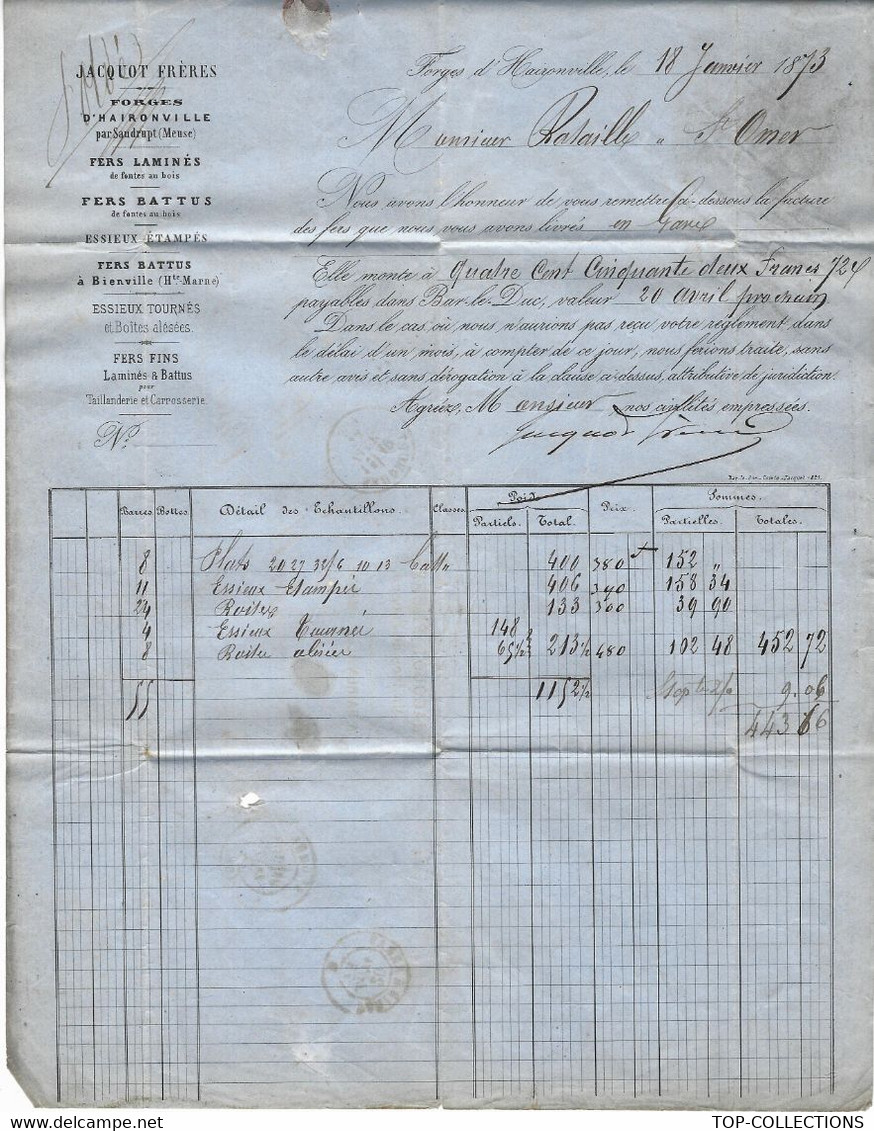 JACQUOT FRÈRES
FORGES
D'HAIRONVILLE
par Saudrupt (Meuse)
FERS LAMINÉS
de fontes au bois
FERS BATTUS
de fontes au bois
ESSIEUX ÉTAMPÉS
FERS BATTUS
à Bienville (Hte Marne)
ESSIEUX TOURNÉS
et Boîtes alésées.
FERS FINS
Laminés & Battus
pour
Taillanderie et Carrosserie.
No.
Forges d'Haironville, le 18 Janvier 1873
Monsieur Rataille " St Omer
Nous avons l'honneur de vous remettre ci-dessous la facture
des fers que nous vous avons livrés en gare
Elle monte à Quatre Cent Cinquante deux Francs 72 c
payables dans Bar-le-Duc, valeur 20 avril prochain
Dans le cas où nous n'aurions pas reçu votre règlement dans
le délai d'un mois, à compter de ce jour, nous ferions traite, sans
autre avis et sans dérogation à la clause ci-dessus, attributive de juridiction.
Agréez, Monsieur, nos civilités empressées.
Jacquot Frères
Barres. Bottes. Détail des Echantillons. Classes. Poids. Partiels. Total. Prix. Sommes. Partielles. Totales.
8 Plats 20 27 32/6 10 13 400 380 152 "
11 Essieux Etampés 406 390 158 34
24 Boites 133 300 39 90
4 Essieux Tournés 148
8 Boites alésées 65 1/2 213 1/2 480 102 48 452 72
55 1152 1/2 9.06
443 66
TOP-COLLECTIONS